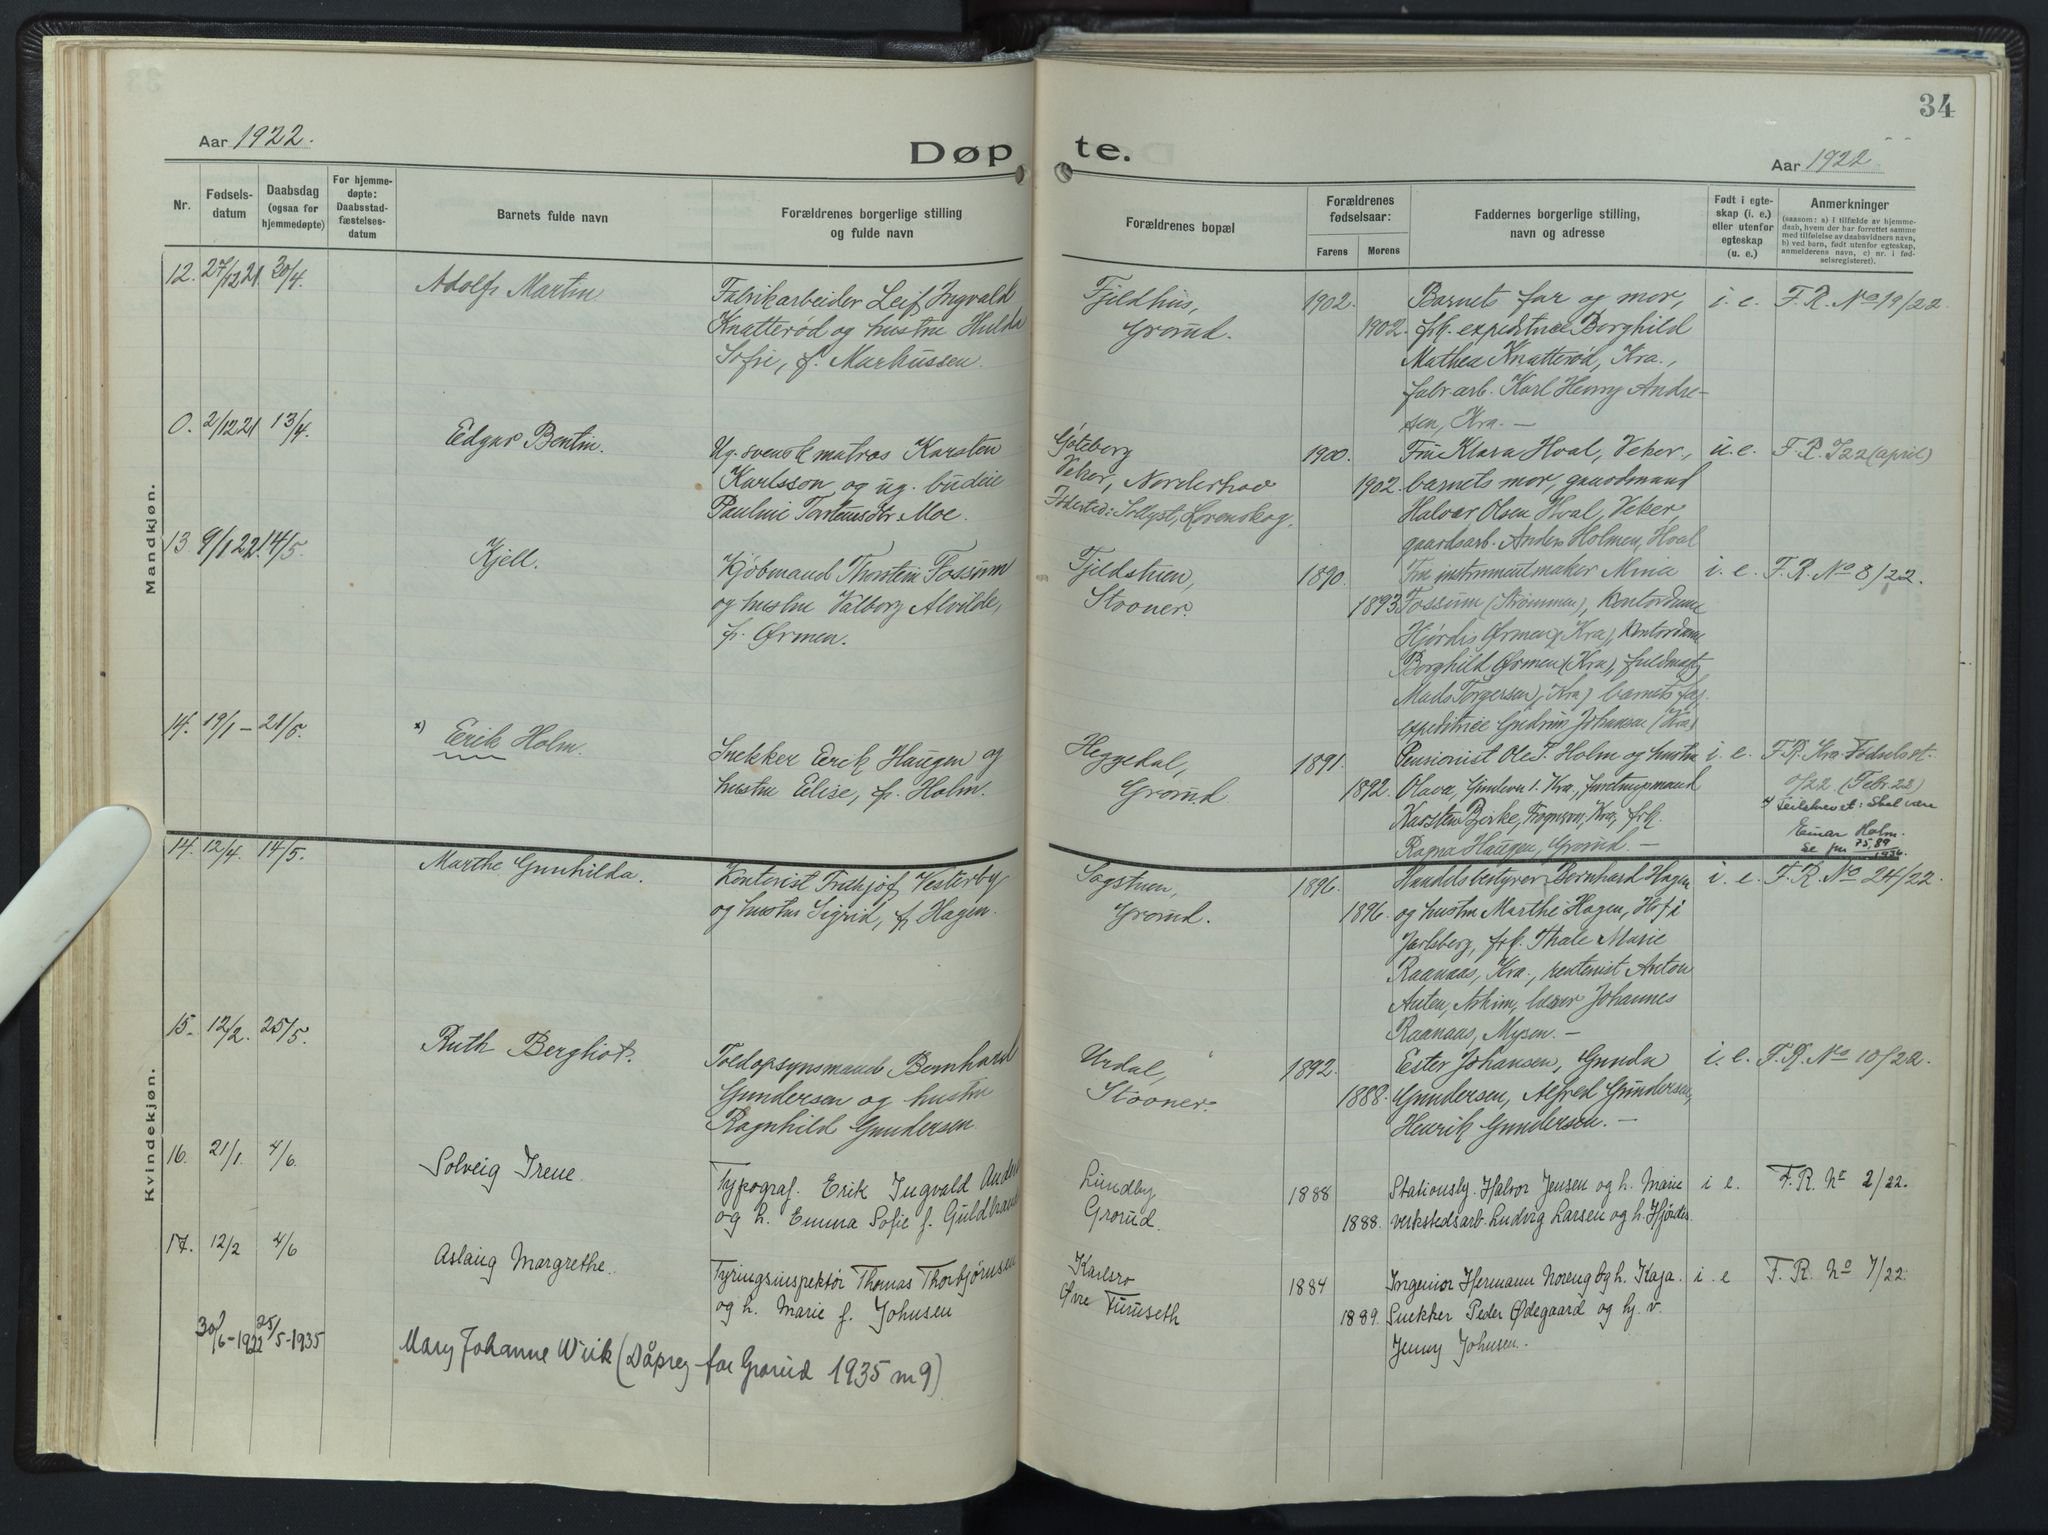 34
Aar 1922.
Døpte.
Aar 1922
Nr.
Fødsels-
datum
Daabsdag
(ogsaa for
hjemmedøpte)
For hjemme-
døpte:
Daabsstad-
fæstelses-
datum
Barnets fulde navn
Forældrenes borgerlige stilling
og fulde navn
Forældrenes bopæl
Forældrenes
fødselsaar:
Farens
Morens
Faddernes borgerlige stilling,
navn og adresse
Født i egte-
skap (i. e.)
eller utenfor
egteskap
(u. e.)
Anmerkninger
(saasom: a) i tilfælde av hjemme-
daab, hvem der har forrettet samme
med tilføielse av daabsvidners navn,
b) ved barn, født utenfor egteskap,
anmelderens navn, c) nr. i fød-
selsregisteret).
Mandkjøn.
12. 27/12 21 30/4.
Adolf Martin
Fabrikarbeider Leif Ingvald
Knatterød og hustru Hulda
Sofie, f. Markussen.
Fjeldhus,
Grorud.
1902.
1902.
Barnets far og mor,
frk. expeditrice Borghild
Mathea Knatterød, Kra.,
fabr.arb. Karl Henry Andre-
sen, Kra. —
i. e.
F. R. No 19/22.
0. 2/12 21 13/4.
Edgar Bentin.
Ug. svensk matros Karsten
Karlsson og ug. budeie
Pauline Torstensdtr. Moe.
Göteborg
Veker, Norderhov
Fødested: Sollyst, Lørenskog.
1900.
1902.
Fru Klara Hval, Veker,
barnets mor, gaardmand
Halvar Olsen Hval, Veker
gaardsarb. Anders Holmen, Hval
u. e.
F. R. I 22 (april)
13 9/1 22. 14/5.
Kjell.
Kjøbmand Thorstein Fossum
og hustru Valborg Alvilde,
f. Ørmen.
Fjeldstuen,
Stovner.
1890.
1893.
Fru instrumentmaker Mina
Fossum (Strømmen), kontordame
Hjørdis Ørmen (Kra), kontordame
Borghild Ørmen (Kra), fuldmægt.
Mads Torgersen, (Kra) barnets far,
expeditrice Gudrun Johansen (Kra)
i. e.
F. R. No 8/22.
14. 19/1 – 21/5.
x) Erik Holm.
Snekker Erik Haugen og
hustru Elise, f. Holm.
Heggedal,
Grorud
1891.
1892.
Pensionist Ole T. Holm og hustru
Olava,
Karsten Bjerke, Kra, frk.
Ragna Haugen, Grorud. —
i. e.
F. R. Kra Fødselsst.
0/22 (Febr. 22)
x) Feilskrevet: Skal være
Einar Holm.
Se jnr 75,89
1936.
Kvindekjøn.
14. 12/4. 14/5.
Marthe Gunhilda.
Kontorist Fridtjof Vesterby
og hustru Sigrid, f. Hagen.
Sagstuen,
Grorud.
1896.
1896.
Handelsbestyrer Bernhard Hagen
og hustru Marthe Hagen, Hof i
Jarlsberg, frk. Thale Marie
Raanaas, Kra., kontorist Anton
Auten, Askim, lærer Johannes
Raanaas, Mysen. —
i. e.
F. R. No 24/22.
15. 12/2. 25/5.
Ruth Bergliot.
Toldopsynsmand Bernhard
Gundersen og hustru
Ragnhild Gundersen.
Urdal,
Stovner.
1892.
1888.
Ester Johansen, Gunda
Gundersen, Alfred Gundersen,
Henrik Gundersen. —
i. e.
F. R. No 10/22.
16. 21/1. 4/6.
Solveig Irene.
Typograf. Erik Ingvald
og h. Emma Sofie f.
Lundby
Grorud.
1888
1888.
Stationsbg. Halvor Jensen og h. Marie
verkstedsarb. Ludvig Larsen og h. Hjørdis
i e.
F. R. No 2/22.
17. 12/2 4/6
Aslaug Margrethe.
Fyringsinspektør Thomas Thorbjørnsen
og h. Marie f. Johnsen
Karlsro
Øvre Furuseth
1884
1889.
Ingeniør Hermann Noreng og h. Kaja.
Snekker Peder Ødegaard og hj. v.
Jenny Johnsen.
i. e
F. R. No 7/22.
30/6-1922 25/5-1935
Mary Johanne Wiik (Dåpreg for Grorud 1935 nr 9)